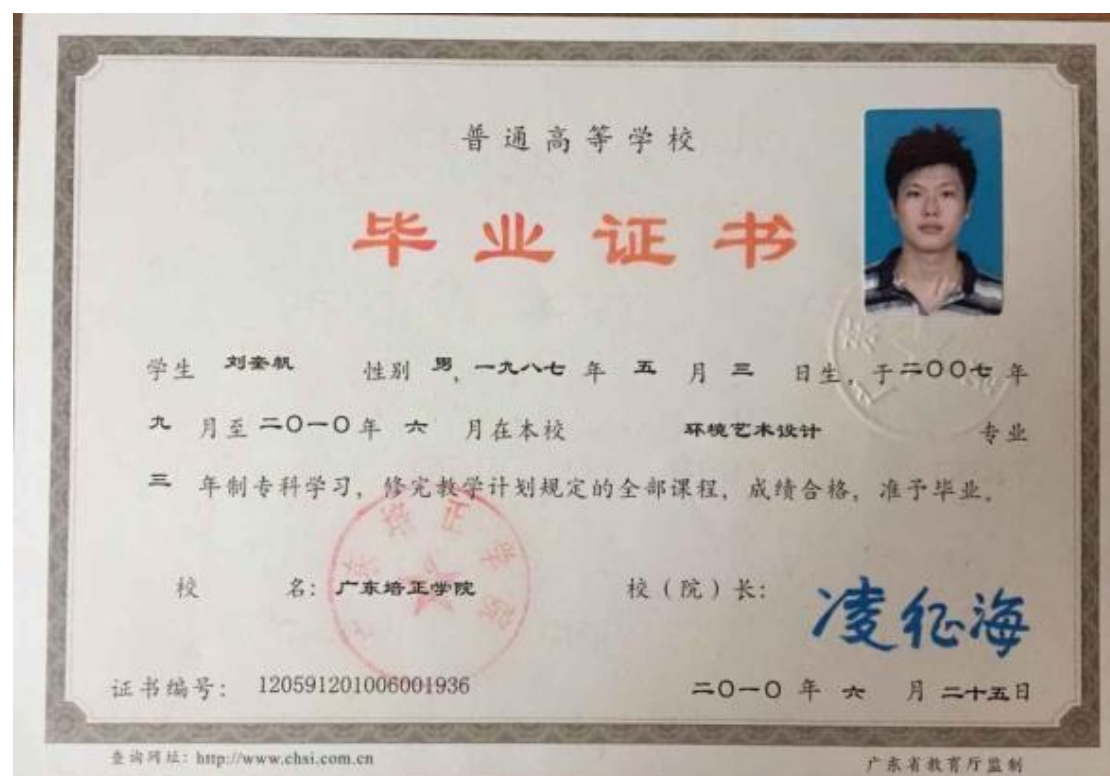 普通高等学校
毕业证书
学生 刘奎帆 性别 男, 一九八七 年 五 月 三 日生, 于 二〇〇七 年
九 月至 二〇一〇 年 六 月在本校 环境艺术设计 专业
三 年制专科学习, 修完教学计划规定的全部课程, 成绩合格, 准予毕业。
广东培正学院
校 名: 广东培正学院 校（院）长: 凌征海
证书编号: 120591201006001936 二〇一〇 年 六 月 二十五日
查询网址: http://www.chsi.com.cn 广东省教育厅监制